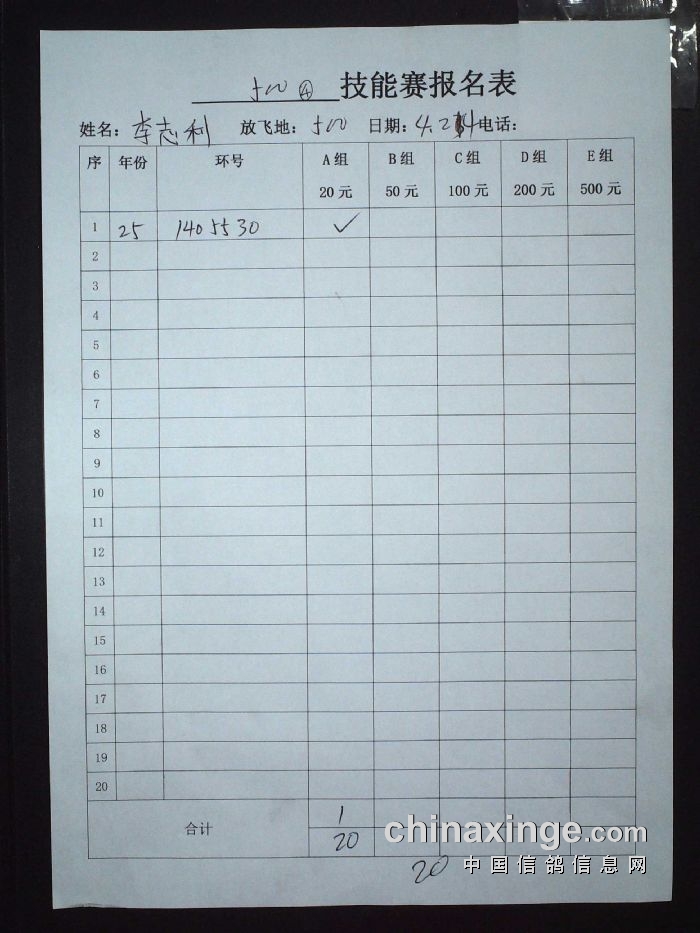 500④ 技能赛报名表
姓名：李志利 放飞地：500 日期：4.24电话：
序 年份 环号 A组 B组 C组 D组 E组
20元 50元 100元 200元 500元
1 25 1405530 ✓
2
3
4
5
6
7
8
9
10
11
12
13
14
15
16
17
18
19
20
合计 1
20
20
chinaxinge.com
中国信鸽信息网